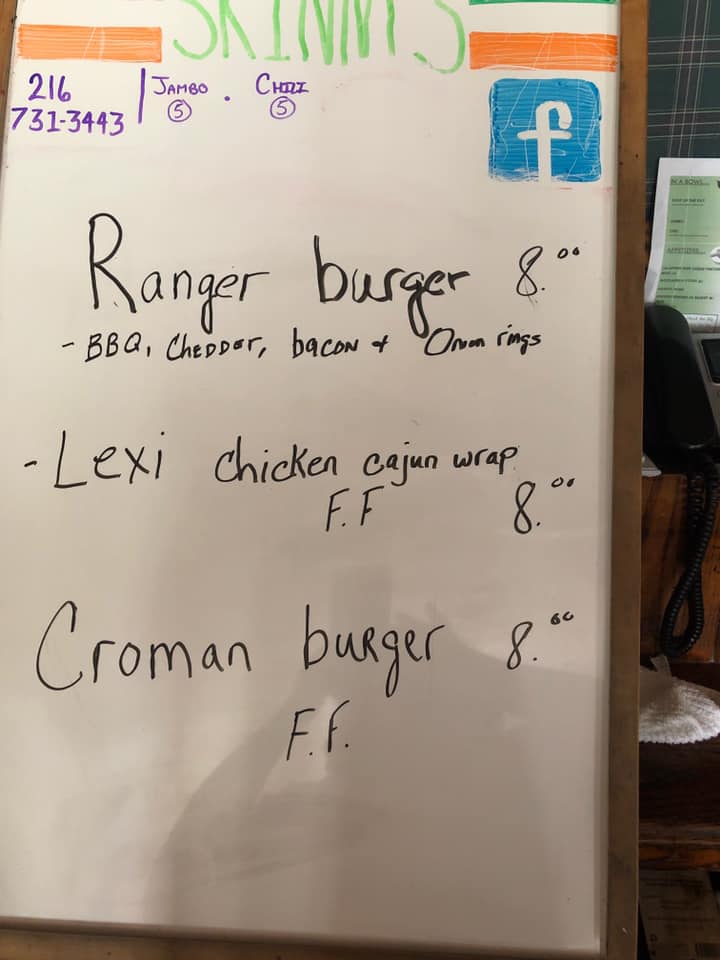 SKINNY'S
216
731-3443
JAMBO . CHILI
5 5
f
Ranger burger 8.00
- BBQ, CHEDDar, bacon + Onion rings
- Lexi chicken cajun wrap
F.F 8.00
Croman burger 8.00
F.F.
IN A BOWL...